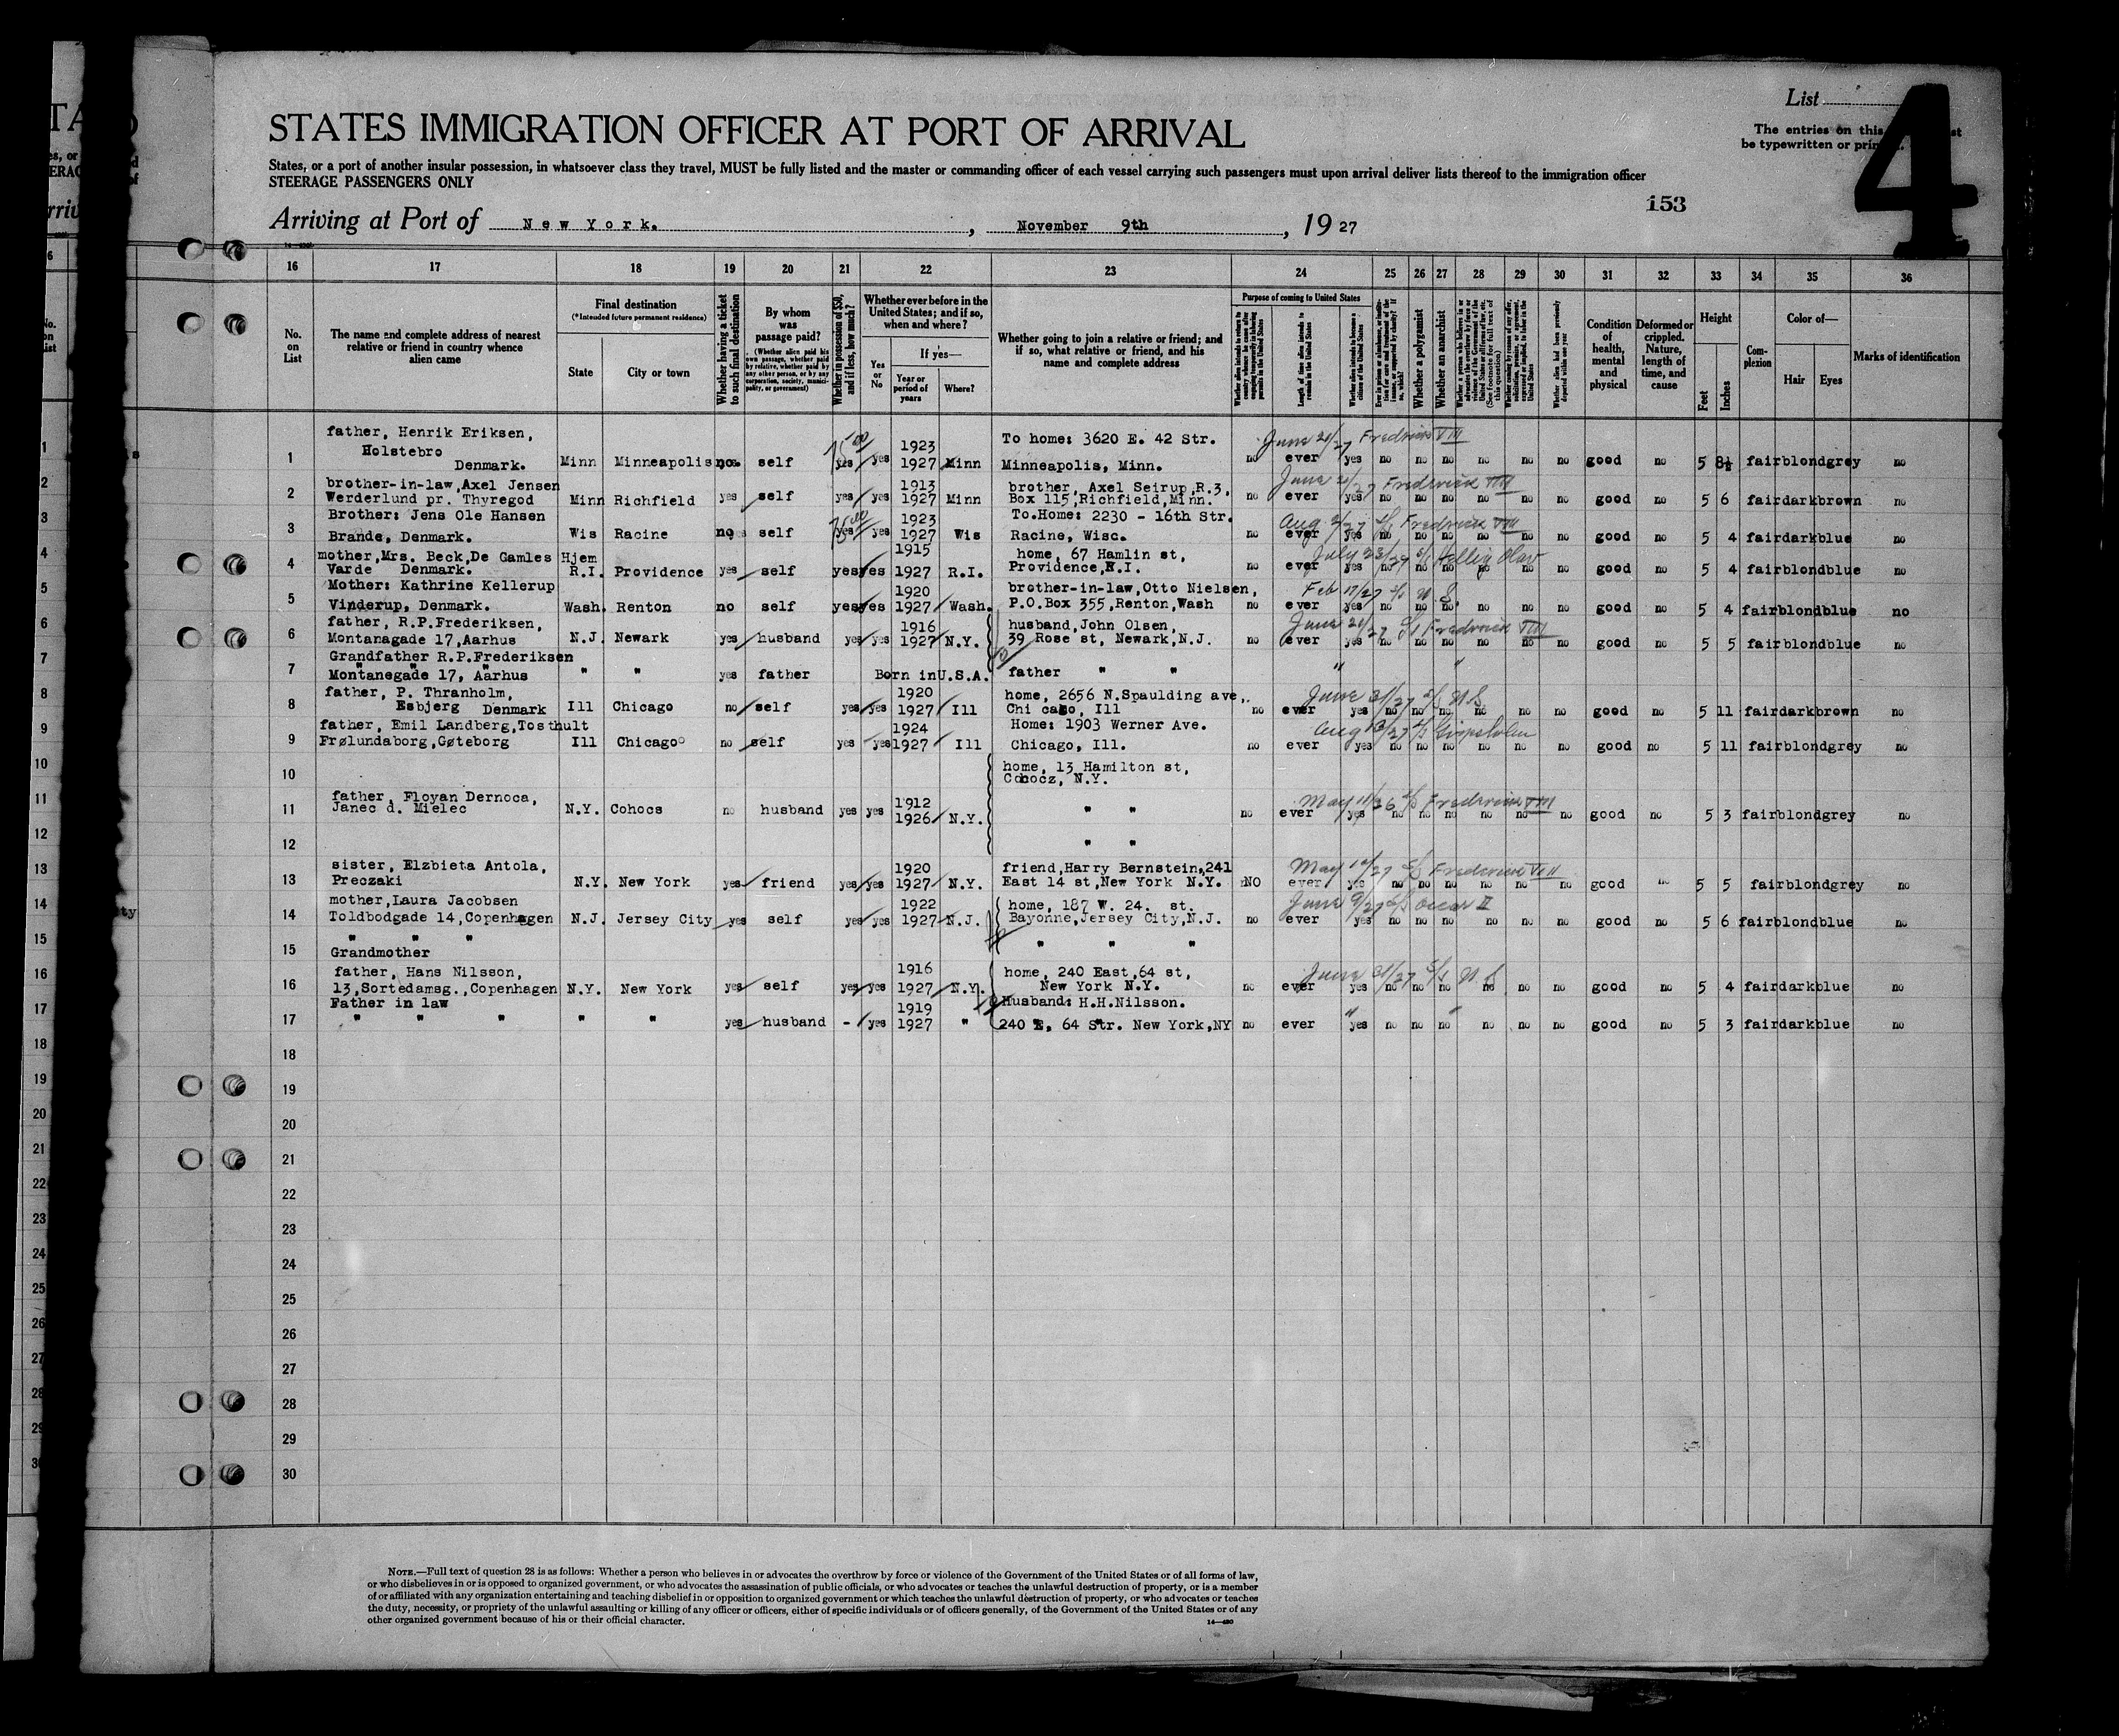 List
4
The entries on this
be typewritten or
STATES IMMIGRATION OFFICER AT PORT OF ARRIVAL
States, or a port of another insular possession, in whatsoever class they travel, MUST be fully listed and the master or commanding officer of each vessel carrying such passengers must upon arrival deliver lists thereof to the immigration officer
STEERAGE PASSENGERS ONLY
153
Arriving at Port of New York. , November 9th , 19 27
16 17 18 19 20 21 22 23 24 25 26 27 28 29 30 31 32 33 34 35 36
No. on List
The name and complete address of nearest relative or friend in country whence alien came
Final destination
(*Intended future permanent residence)
State
City or town
Whether having a ticket to such final destination
By whom was passage paid?
(Whether alien paid his own passage, whether paid by relative, whether paid by any other person, or by any corporation, society, municipality, or government)
Whether in possession of $50, and if less, how much?
Whether ever before in the United States; and if so, when and where?
Yes or No
If yes—
Year or period of years
Where?
Whether going to join a relative or friend; and if so, what relative or friend, and his name and complete address
Purpose of coming to United States
Length of time alien intends to remain in the United States
Whether alien intends to become a citizen of the United States
Whether a polygamist
Whether an anarchist
Condition of health, mental and physical
Deformed or crippled. Nature, length of time, and cause
Height
Feet
Inches
Complexion
Color of—
Hair
Eyes
Marks of identification
father, Henrik Eriksen, 1923 To home: 3620 E. 42 Str. June 21/27 Fredrick VIII
1 Holstebro Denmark. Minn Minneapolis self yes yes 1927 Minn Minneapolis, Minn. no ever yes no no no no no no good no 5 8½ fair blond grey no
brother-in-law, Axel Jensen 1913 brother, Axel Seirup, R.3, June 21/27 Frederick VIII
2 Werderlund pr. Thyregod Minn Richfield yes self yes yes 1927 Minn Box 115, Richfield, Minn. no ever yes no no no no no no good no 5 6 fair dark brown no
Brother: Jens Ole Hansen 1923 To.Home: 2230 - 16th Str. Aug 2/27 Fredrick VIII
3 Brande, Denmark. Wis Racine no self yes yes 1927 Wis Racine, Wisc. no ever yes no no no no no no good no 5 4 fair dark blue no
mother, Mrs. Beck, De Gamles Hjem 1915 home, 67 Hamlin st, July 23/27 Hellig Olav
4 Varde Denmark. R.I. Providence yes self yes yes 1927 R.I. Providence, R.I. no ever yes no no no no no no good no 5 4 fair blond blue no
Mother: Kathrine Kellerup 1920 brother-in-law, Otto Nielsen, Feb 17/27
5 Vinderup, Denmark. Wash. Renton no self yes yes 1927 Wash. P.O.Box 355, Renton, Wash no ever yes no no no no no no good no 5 4 fair blond blue no
father, R.P.Frederiksen, 1916 husband, John Olsen, June 21/27 Fredrick VIII
6 Montanagade 17, Aarhus N.J. Newark yes husband yes yes 1927 N.Y. 39 Rose st, Newark, N.J. no ever yes no no no no no no good no 5 5 fair blond blue no
Grandfather R.P.Frederiksen
7 Montanegade 17, Aarhus " " yes father Born in U.S.A. father " " " "
father, P. Thranholm, 1920 home, 2656 N.Spaulding ave,.
8 Esbjerg Denmark Ill Chicago no self yes yes 1927 Ill Chi cago, Ill no ever yes no no no no no no good no 5 11 fair dark brown no
father, Emil Landberg, Tosthult 1924 Home: 1903 Werner Ave. Aug 13/27 Gripsholm
9 Frølundaborg, Gøteborg Ill Chicago no self yes yes 1927 Ill Chicago, Ill. no ever yes no no no no no no good no 5 11 fair blond grey no
10 home, 13 Hamilton st,
Cohocz, N.Y.
father, Floyan Dernoca, 1912 May 11/26 Frederick VIII
11 Janec d. Mielec N.Y. Cohocs no husband yes yes 1926 N.Y. " " no ever yes no no no no no no good no 5 3 fair blond grey no
12 " "
sister, Elzbieta Antola, 1920 friend, Harry Bernstein, 241 May 10/27 Frederick VIII
13 Preczaki N.Y. New York yes friend yes yes 1927 N.Y. East 14 st, New York N.Y. NO ever yes no no no no no no good no 5 5 fair blond grey no
mother, Laura Jacobsen 1922 home, 187 W. 24. st. June 9/27 Oscar II
14 Toldbodgade 14, Copenhagen N.J. Jersey City yes self yes yes 1927 N.J. Bayonne, Jersey City, N.J. no ever yes no no no no no no good no 5 6 fair blond blue no
" " " " " "
15 Grandmother
father, Hans Nilsson, 1916 home, 240 East, 64 st,
16 13, Sortedamsg., Copenhagen N.Y. New York yes self yes yes 1927 N.Y. New York N.Y. no ever yes no no no no no no good no 5 4 fair dark blue no
Father in law 1919 Husband: H.H.Nilsson.
17 " " " " " yes husband - yes 1927 " 240 E, 64 Str. New York, NY no ever yes no no no no no no good no 5 3 fair dark blue no
18
19
20
21
22
23
24
25
26
27
28
29
30
NOTE.—Full text of question 28 is as follows: Whether a person who believes in or advocates the overthrow by force or violence of the Government of the United States or of all forms of law,
or who disbelieves in or is opposed to organized government, or who advocates the assassination of public officials, or who advocates or teaches the unlawful destruction of property, or is a member
of or affiliated with any organization entertaining and teaching disbelief in or opposition to organized government or which teaches the unlawful destruction of property, or who advocates or teaches
the duty, necessity, or propriety of the unlawful assaulting or killing of any officer or officers, either of specific individuals or of officers generally, of the Government of the United States or of any
other organized government because of his or their official character.